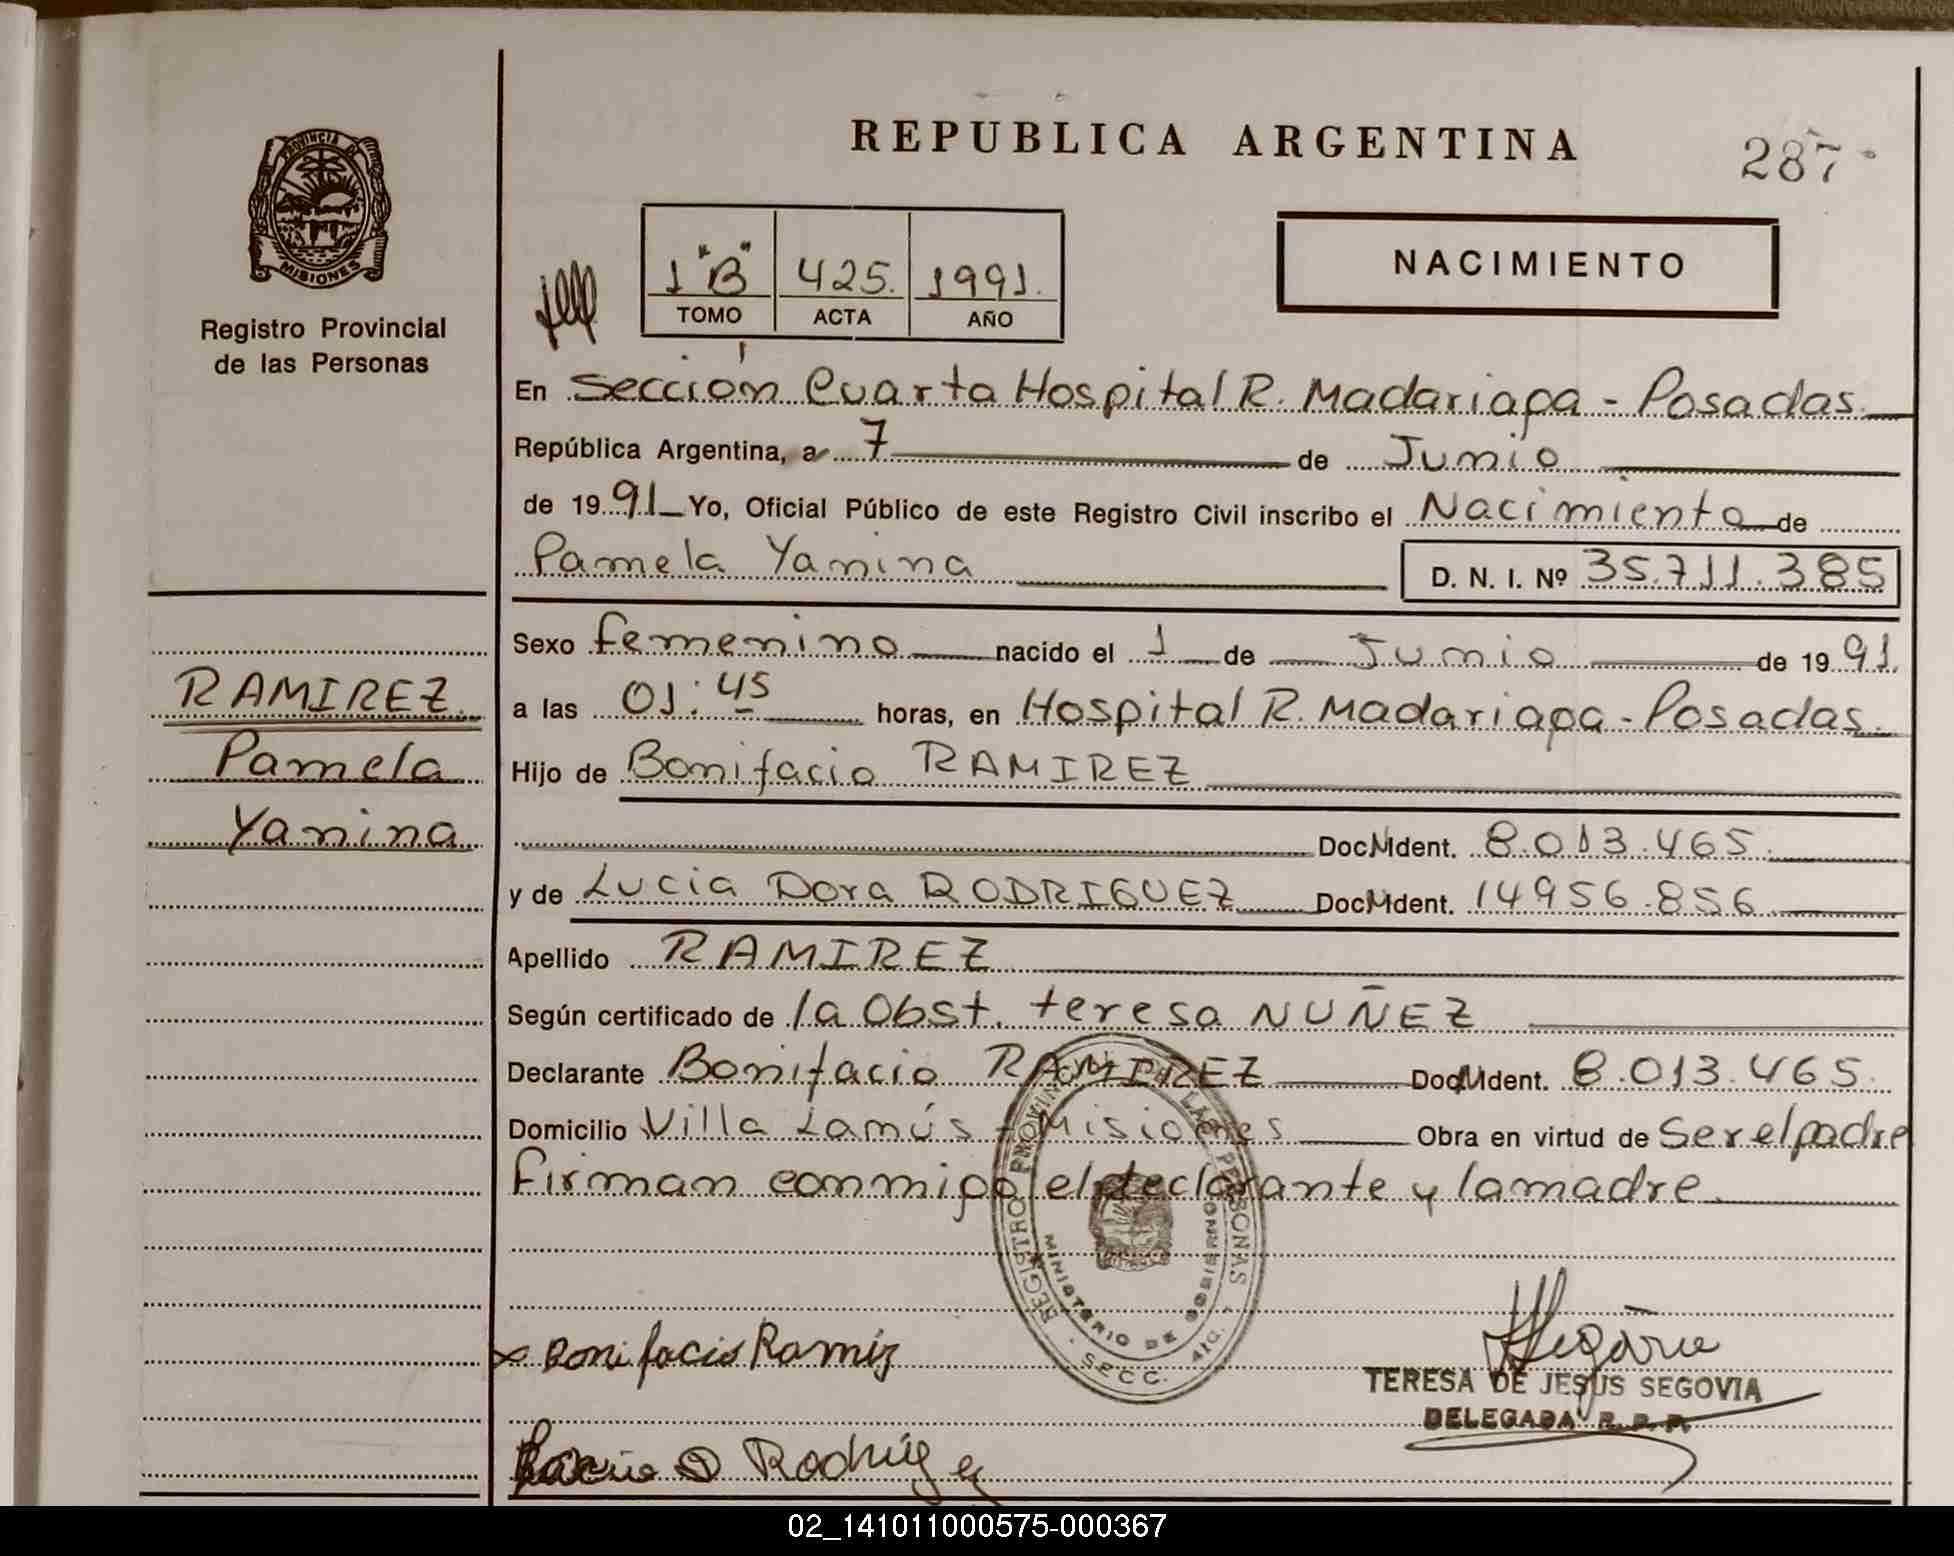 REPUBLICA ARGENTINA
287
PROVINCIA DE MISIONES
Registro Provincial
de las Personas
1 "B" 425. 1991.
TOMO ACTA AÑO
NACIMIENTO
En Sección Cuarta Hospital R. Madariaga - Posadas.
República Argentina, a 7 de Junio
de 1991 Yo, Oficial Público de este Registro Civil inscribo el Nacimiento de
Pamela Yanina D. N. I. Nº 35.711.385
Sexo femenino nacido el 1 de Junio de 1991.
RAMIREZ
Pamela
Yanina
a las 01:45 horas, en Hospital R. Madariaga - Posadas.
Hijo de Bonifacio RAMIREZ
Doc. Ident. 8.013.465.
y de Lucia Dora RODRIGUEZ Doc. Ident. 14956.856
Apellido RAMIREZ
Según certificado de la Obst. teresa NUÑEZ
Declarante Bonifacio RAMIREZ Doc. Ident. 8.013.465.
Domicilio Villa Lanús - Misiones Obra en virtud de Ser el padre
Firman conmigo el declarante y la madre.
REGISTRO PROVINCIAL DE LAS PERSONAS
MINISTERIO DE GOBIERNO
SECC. 4TA.
x Bonifacio Ramirez
TERESA DE JESUS SEGOVIA
DELEGADA R. P. P.
Lucia D Rodriguez
02_141011000575-000367